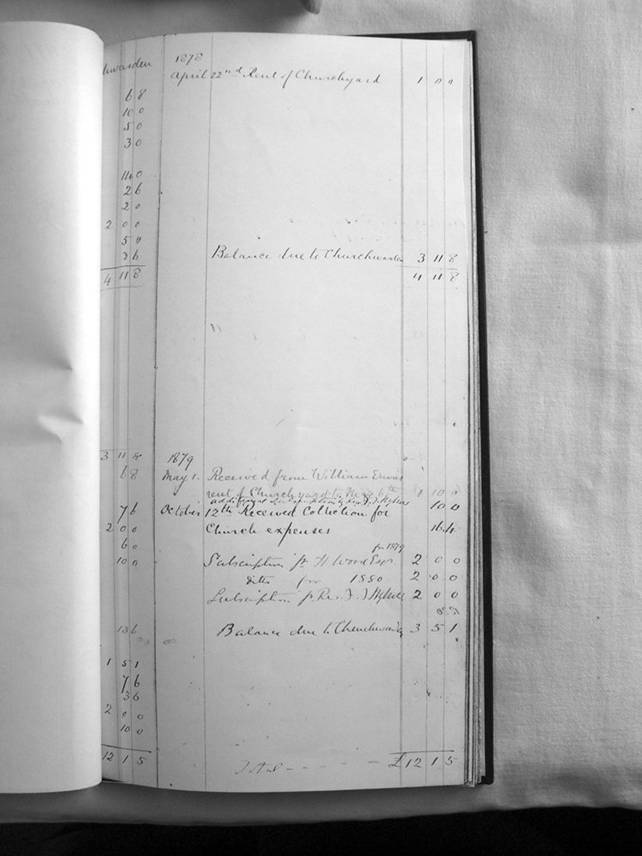 1878
April 22nd Rent of Churchyard 1 0 0
6 8
10 0
5 0
3 0
2 6
2 0
2 0 0
5 0
3 6 Balance due to Churchwarden 3 11 8
4 11 8 4 11 8
3 11 8 1879
6 8 May 1. Received from William
rent of Churchyard to 1 10 0
additional 10 0
7 6 October 12th Received Collection for
2 0 0 Church expenses 16 4
6 0 for 1879
10 0 Subscription fr H Wood Esqr. 2 0 0
ditto for 1880 2 0 0
Subscription Rev. 2 0 0
13 6 Balance due to 3 5 1
1 5 1
7 6
3 6
2 0 0
10 0
12 1 5 Total - - - - £12 1 5